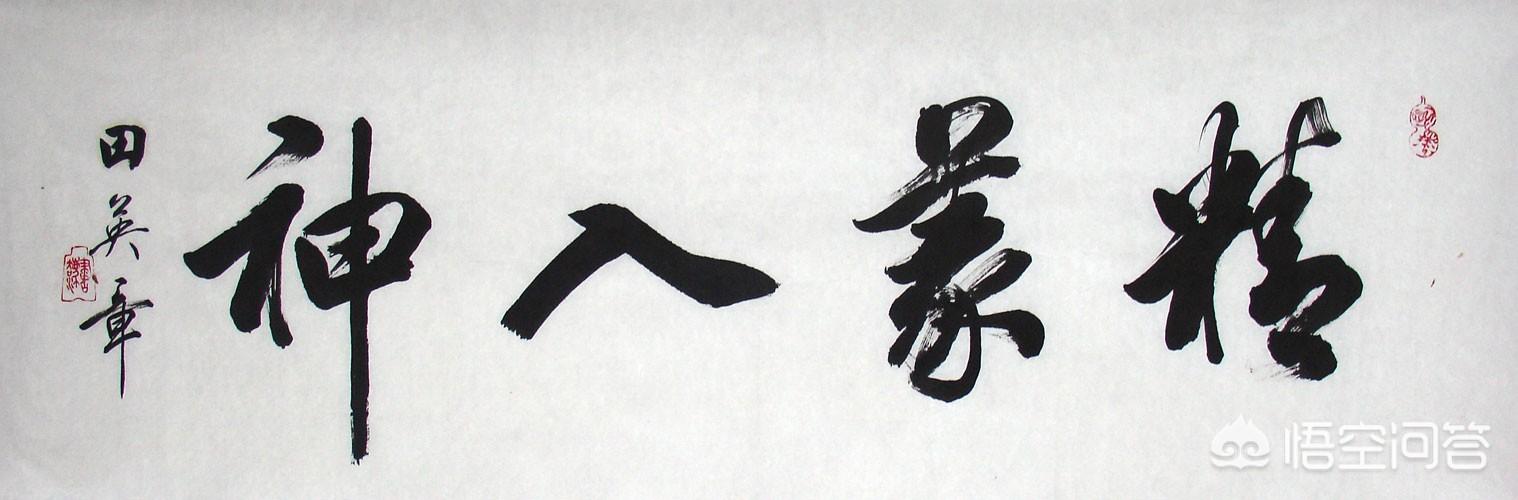 精義入神
田英章
悟空问答